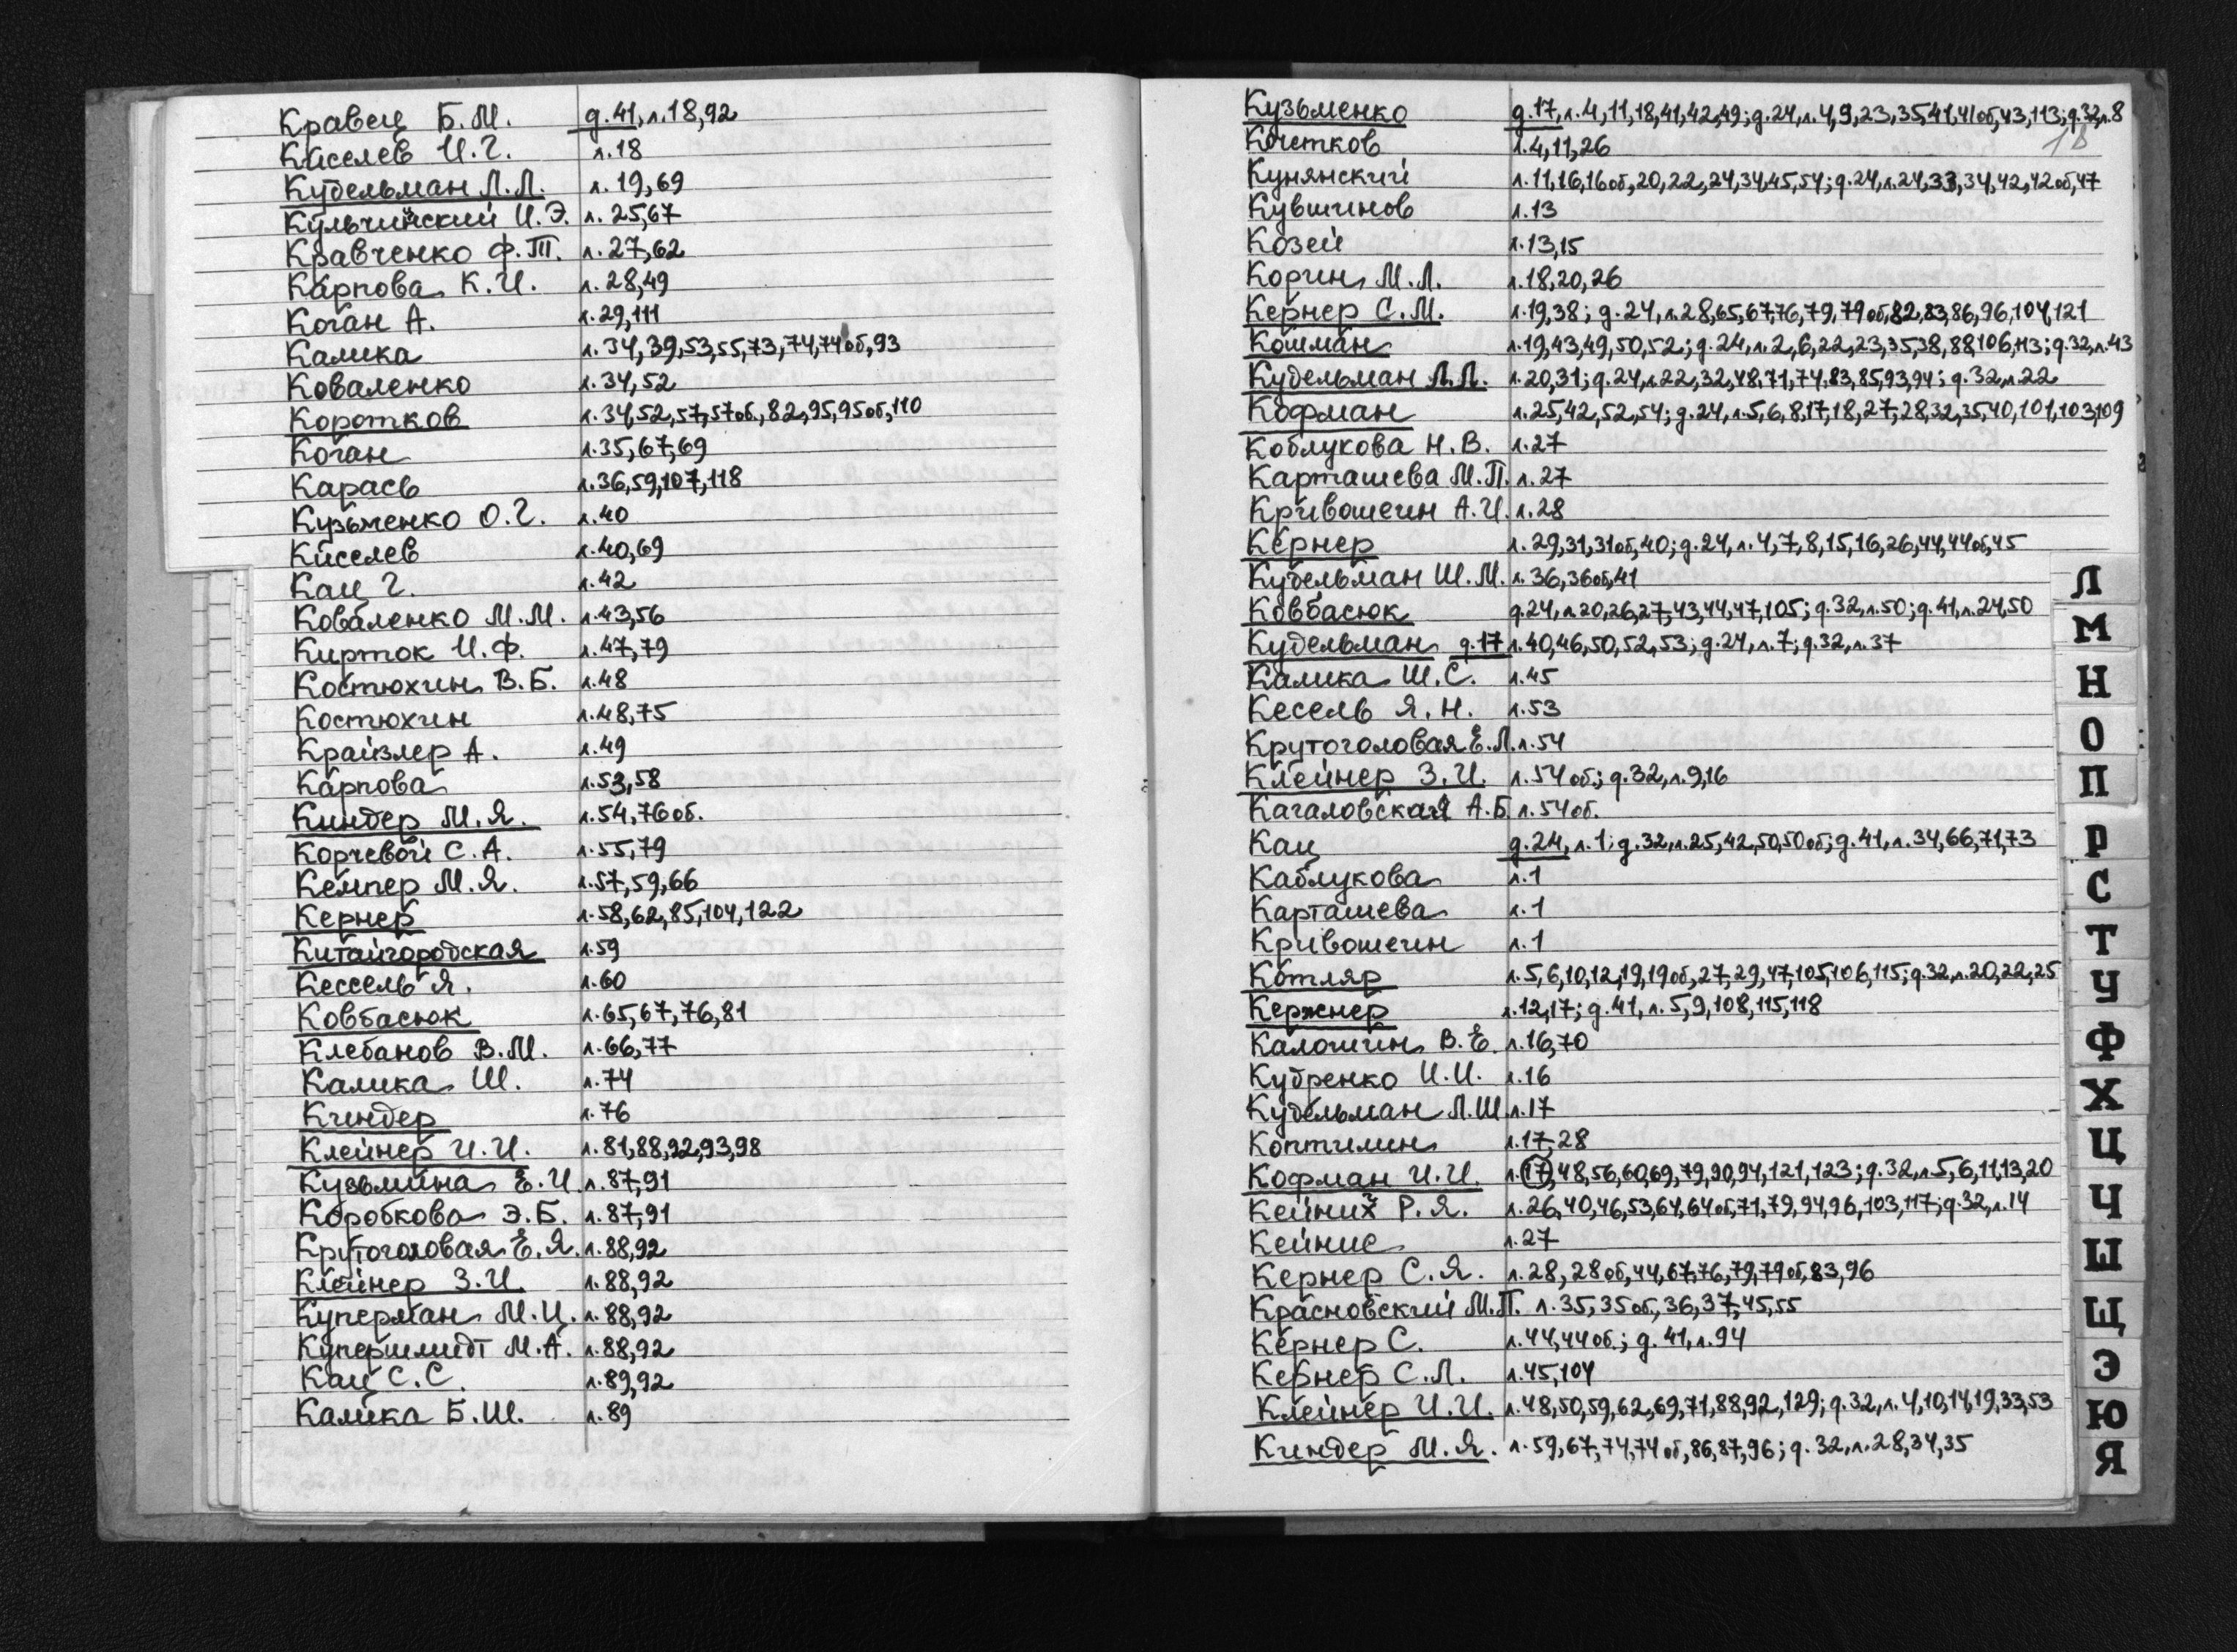 Кравец Б.М. д.41, л.18,92
Киселев И.Г. л.18
Кудельман Л.Л. л.19,69
Кульчинский И.Э. л.25,67
Кравченко Ф.Т. л.27,62
Карпова К.И. л.28,49
Коган А. л.29,111
Калика л.34,39,53,55,73,74,74об,93
Коваленко л.34,52
Коротков л.34,52,57,57об.,82,95,95об,110
Коган л.35,67,69
Карась л.36,59,107,118
Кузьменко О.Г. л.40
Киселев л.40,69
Кац Г. л.42
Коваленко М.М. л.43,56
Кирток И.Ф. л.47,79
Костюхин В.Б. л.48
Костюхин л.48,75
Крайзлер А. л.49
Карпова л.53,58
Киндер М.Я. л.54,76об.
Корчевой С.А. л.55,79
Кемпер М.Я. л.57,59,66
Кернер л.58,62,85,104,122
Китайгородская л.59
Кессель Я. л.60
Ковбасюк л.65,67,76,81
Клебанов В.М. л.66,77
Калика Ш. л.74
Киндер л.76
Клейнер И.И. л.81,88,92,93,98
Кузьмина Е.И. л.87,91
Коробкова Э.Б. л.87,91
Крутоголовая Е.Я. л.88,92
Клейнер З.И. л.88,92
Куперман М.Ц. л.88,92
Купершмидт М.А. л.88,92
Кац С.С. л.89,92
Калика Б.Ш. л.89
Кузьменко д.17, л.4,11,18,41,42,49; д.24, л.4,9,23,35,41,41об,43,113; д.32, л.8
18
Кочетков л.4,11,26
Кунянский л.11,16,16об,20,22,24,34,45,54; д.24, л.24,33,34,42,42об,47
Кувшинов л.13
Козей л.13,15
Корин М.Л. л.18,20,26
Кернер С.М. л.19,38; д.24, л.28,65,67,76,79,79об,82,83,86,96,104,121
Кошман л.19,43,49,50,52; д.24, л.2,6,22,23,35,38,88,106,113; д.32, л.43
Кудельман Л.Л. л.20,31; д.24, л.22,32,48,71,74,83,85,93,94; д.32, л.22
Кофман л.25,42,52,54; д.24, л.5,6,8,17,18,27,28,32,35,40,101,103,109
Коблукова Н.В. л.27
Карташева М.П. л.27
Кривошеин А.И. л.28
Кернер л.29,31,31об,40; д.24, л.4,7,8,15,16,26,44,44об,45
Кудельман Ш.М. л.36,36об,41
Ковбасюк д.24, л.20,26,27,43,44,47,105; д.32, л.50; д.41, л.24,50
Кудельман д.17 л.40,46,50,52,53; д.24, л.7; д.32, л.37
Калика Ш.С. л.45
Кесель Я.Н. л.53
Крутоголовая Е.Л. л.54
Клейнер З.И. л.54об; д.32, л.9,16
Кагаловская А.Б. л.54об.
Кац д.24, л.1; д.32, л.25,42,50,50об; д.41, л.34,66,71,73
Каблукова л.1
Карташева л.1
Кривошеин л.1
Котляр л.5,6,10,12,19,19об,27,29,47,105,106,115; д.32, л.20,22,25
Кержнер л.12,17; д.41, л.5,9,108,115,118
Калошин В.Е. л.16,70
Кубренко И.И. л.16
Кудельман Л.Ш л.17
Коптилин л.17,28
Кофман И.И. л.17,48,56,60,69,79,90,94,121,123; д.32, л.5,6,11,13,20
Кейних Р.Я. л.26,40,46,53,64,64об,71,79,94,96,103,117; д.32, л.14
Кейние л.27
Кернер С.Я. л.28,28об,44,67,76,79,79об,83,96
Красновский М.П. л.35,35об,36,37,45,55
Кернер С. л.44,44об.; д.41, л.94
Кернер С.Л. л.45,104
Клейнер И.И. л.48,50,59,62,69,71,88,92,129; д.32, л.4,10,14,19,33,53
Киндер М.Я. л.59,67,74,74об,86,87,96; д.32, л.28,34,35
Л
М
Н
О
П
Р
С
Т
У
Ф
Х
Ц
Ч
Ш
Щ
Э
Ю
Я